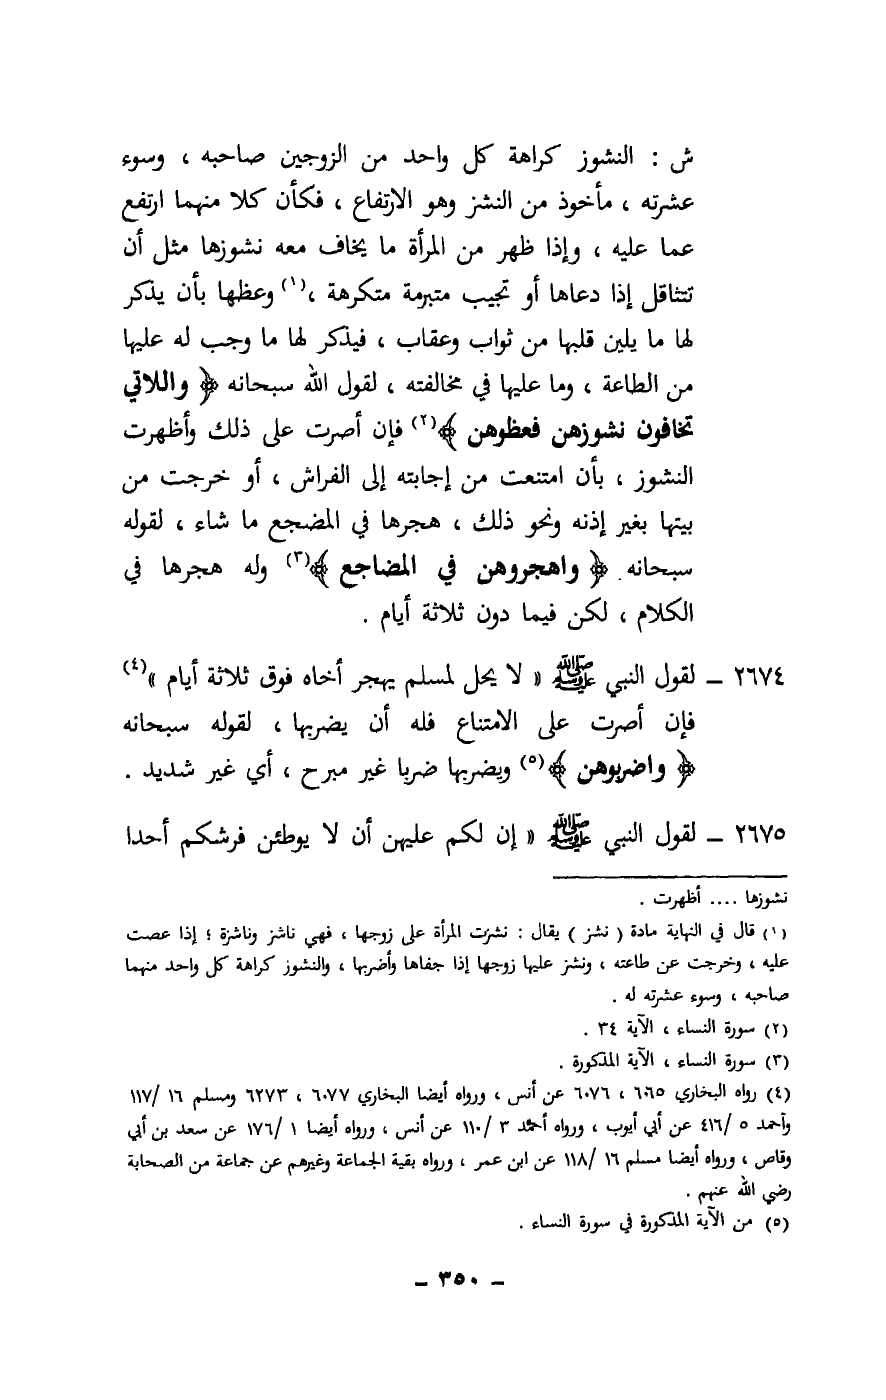 ش : النشوز كراهة كل واحد من الزوجين صاحبه ، وسوء
عشرته ، مأخوذ من النشز وهو الارتفاع ، فكأن كلا منهما ارتفع
عما عليه ، وإذا ظهر من المرأة ما يخاف معه نشوزها مثل أن
تتثاقل إذا دعاها أو تجيب متبرمة متكرهة ،(١) وعظها بأن يذكر
لها ما يلين قلبها من ثواب وعقاب ، فيذكر لها ما وجب له عليها
من الطاعة ، وما عليها في مخالفته ، لقول الله سبحانه ﴿ واللاتي
تخافون نشوزهن فعظوهن ﴾(٢) فإن أصرت على ذلك وأظهرت
النشوز ، بأن امتنعت من إجابته إلى الفراش ، أو خرجت من
بيتها بغير إذنه ونحو ذلك ، هجرها في المضجع ما شاء ، لقوله
سبحانه ﴿ واهجروهن في المضاجع ﴾(٣) وله هجرها في
الكلام ، لكن فيما دون ثلاثة أيام .
٢٦٧٤ – لقول النبي ﷺ « لا يحل لمسلم يهجر أخاه فوق ثلاثة أيام »(٤)
فإن أصرت على الامتناع فله أن يضربها ، لقوله سبحانه
﴿ واضربوهن ﴾(٥) ويضربها ضربا غير مبرح ، أي غير شديد .
٢٦٧٥ – لقول النبي ﷺ « إن لكم عليهن أن لا يوطئن فرشكم أحدا
نشوزها .... أظهرت .
(١) قال في النهاية مادة ( نشز ) يقال : نشزت المرأة على زوجها ، فهي ناشز وناشزة ؛ إذا عصت
عليه ، وخرجت عن طاعته ، ونشز عليها زوجها إذا جفاها وأضربها ، والنشوز كراهة كل واحد منهما
صاحبه ، وسوء عشرته له .
(٢) سورة النساء ، الآية ٣٤ .
(٣) سورة النساء ، الآية المذكورة .
(٤) رواه البخاري ٦٠٦٥ ، ٦٠٧٦ عن أنس ، ورواه أيضا البخاري ٦٠٧٧ ، ٦٢٧٣ ومسلم ١٦ /١١٧
وأحمد ٥ /٤١٦ عن أبي أيوب ، ورواه أحمد ٣ /١١٠ عن أنس ، ورواه أيضا ١ /١٧٦ عن سعد بن أبي
وقاص ، ورواه أيضا مسلم ١٦ /١١٨ عن ابن عمر ، ورواه بقية الجماعة وغيرهم عن جماعة من الصحابة
رضي الله عنهم .
(٥) من الآية المذكورة في سورة النساء .
– ٣٥٠ –